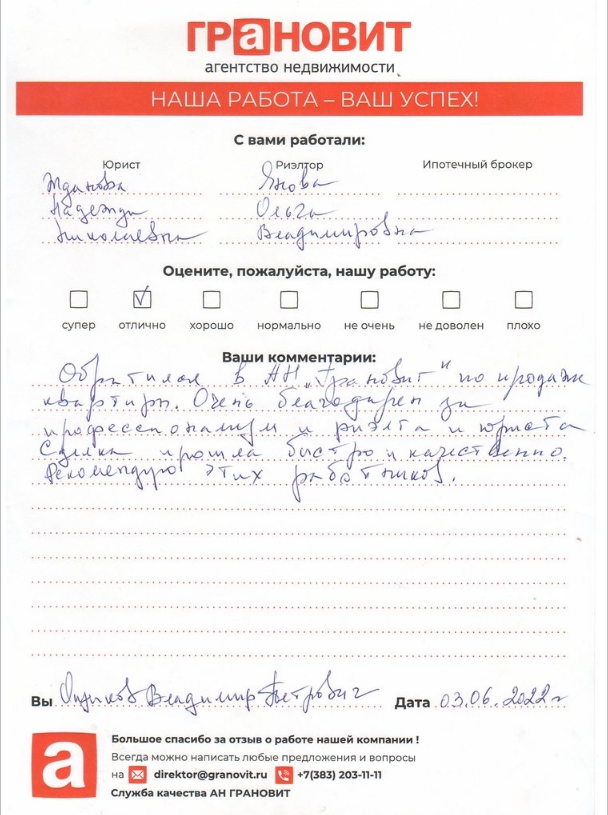 ГРаНОВИТ
агентство недвижимости
НАША РАБОТА – ВАШ УСПЕХ!
С вами работали:
Юрист Риэлтор Ипотечный брокер
Жданова Янова
Надежда Ольга
Николаевна Владимировна
Оцените, пожалуйста, нашу работу:
супер отлично хорошо нормально не очень не доволен плохо
Ваши комментарии:
Обратился в АН „Грановит" по продаже
квартиры. Очень благодарен за
профессионализм и риэлта и юриста
Сделка прошла быстро и качественно.
Рекомендую этих работников.
Вы Владимир Петрович Дата 03.06.2022г
а
Большое спасибо за отзыв о работе нашей компании !
Всегда можно написать любые предложения и вопросы
на direktor@granovit.ru +7(383) 203-11-11
Служба качества АН ГРАНОВИТ